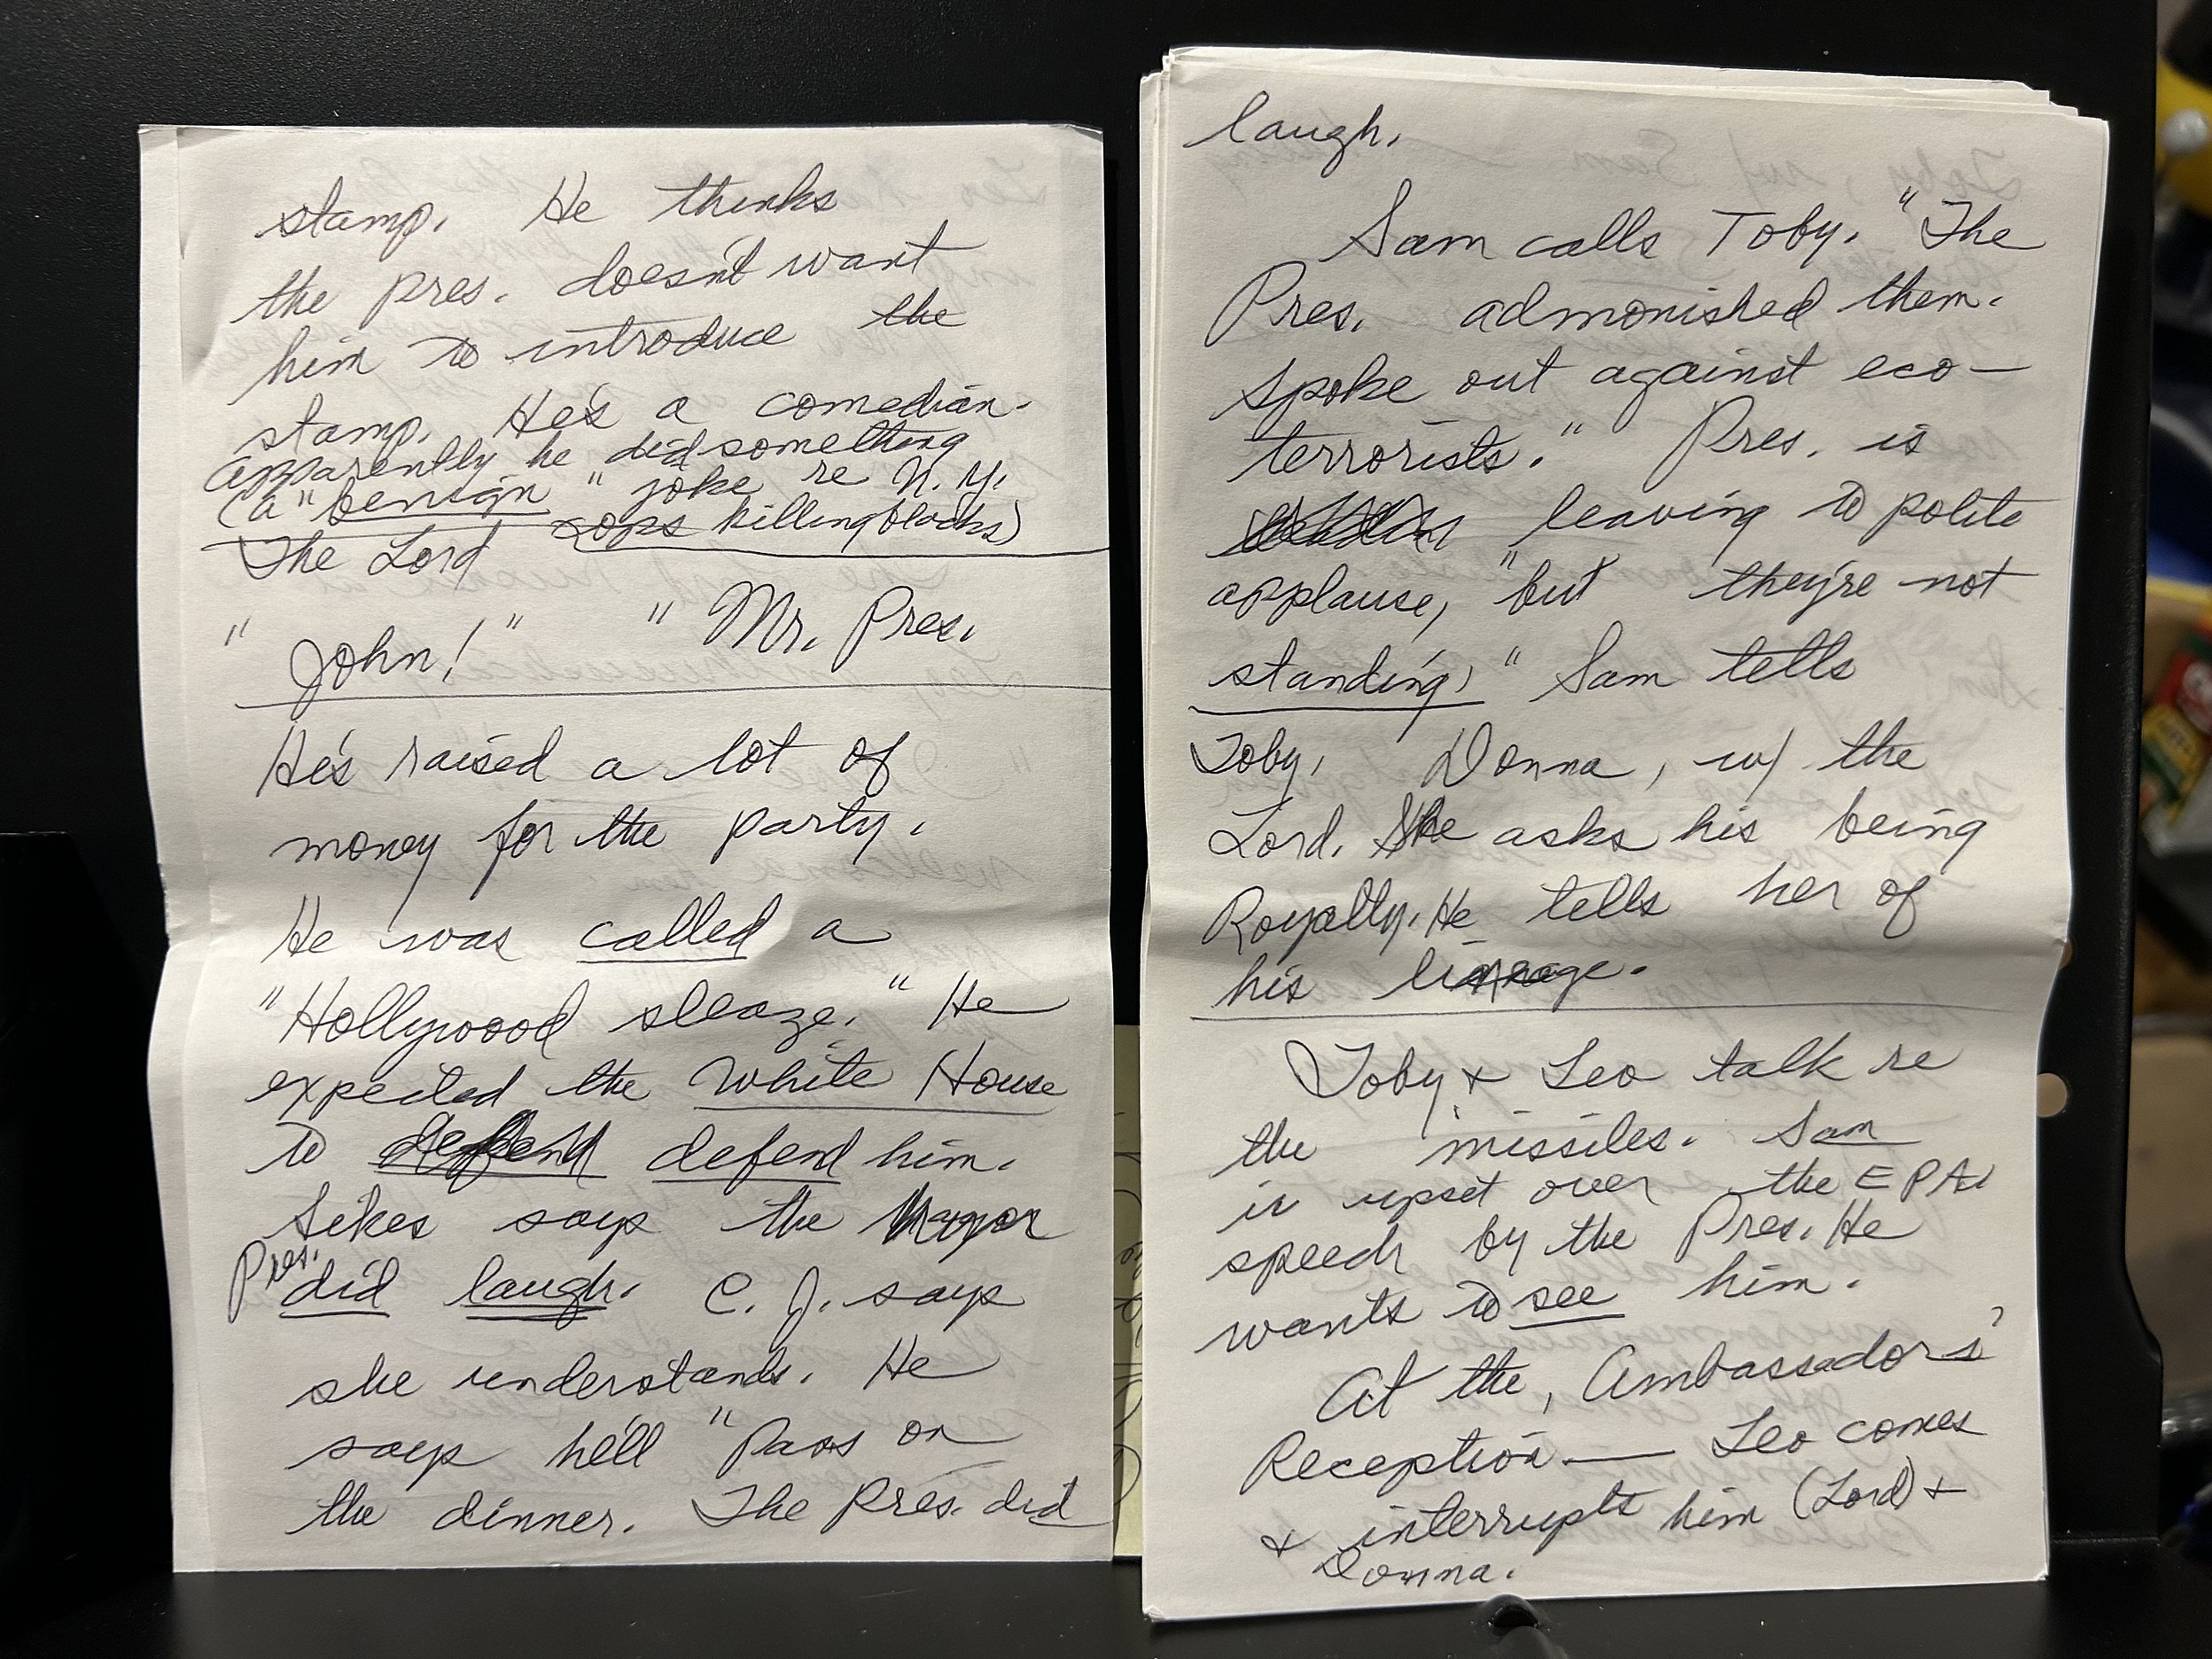 stamp. He thinks
the pres. doesn't want
him to introduce the
stamp. He's a comedian.
apparently he did something
(a "benign" joke re N.Y.
cops killing blacks)
The Lord
"John!" "Mr. Pres.
He's raised a lot of
money for the party.
He was called a
"Hollywood sleaze." He
expected the White House
to defend defend him.
Sikes says the Mayor
Pres.
did laugh. C.J. says
she understands. He
says he'll "Pass on
the dinner. The Pres. did
laugh.
Sam calls Toby. "The
Pres. admonished them.
Spoke out against eco-
terrorists." Pres. is
leaving to polite
applause, "but they're not
standing," Sam tells
Toby. Donna, w/ the
Lord. She asks his being
Royalty. He tells her of
his lineage.
Toby + Leo talk re
the missiles. Sam
is upset over the EPA
speech by the Pres. He
wants to see him.
At the, Ambassadors'
Reception — Leo comes
+ interrupts him (Lord) +
Donna.